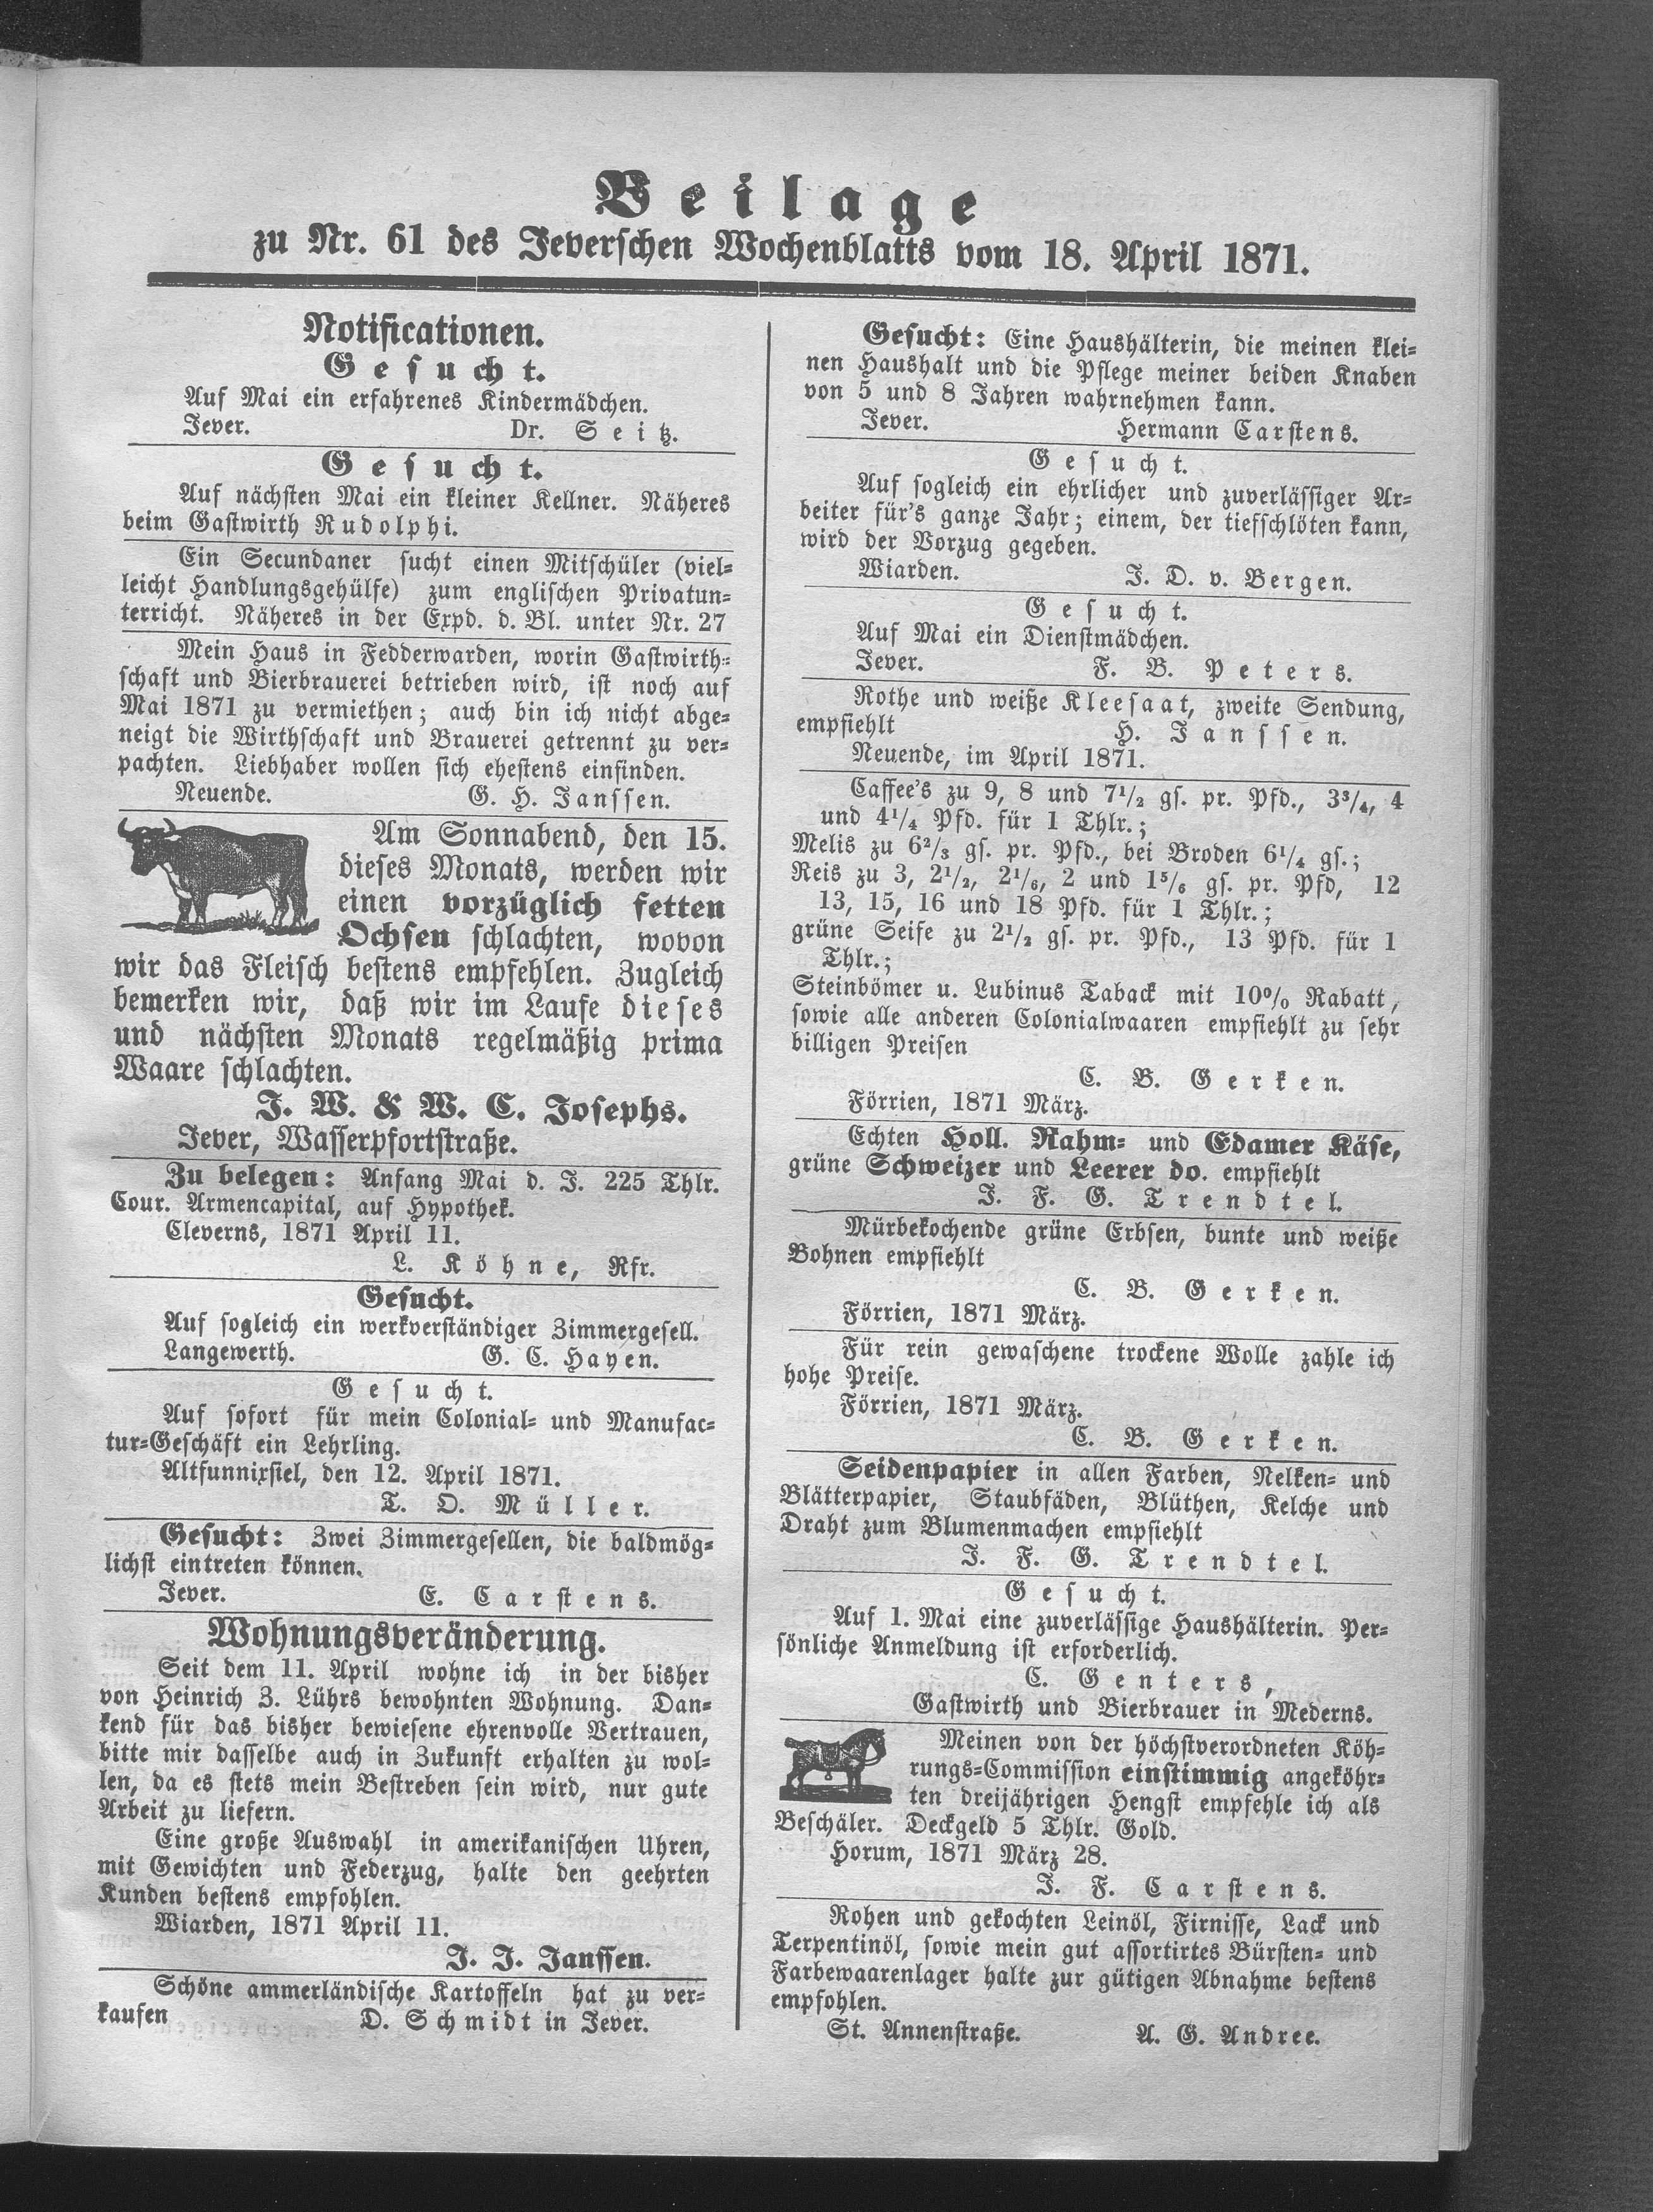 Beilage
zu Nr. 61 des Jeverschen Wochenblatts vom 18. April 1871.
Notificationen.
Gesucht.
Auf Mai ein erfahrenes Kindermädchen.
Jever. Dr. Seitz.
Gesucht.
Auf nächsten Mai ein kleiner Kellner. Näheres
beim Gastwirth Rudolphi.
Ein Secundaner sucht einen Mitschüler (viel-
leicht Handlungsgehülfe) zum englischen Privatun-
terricht. Näheres in der Expd. d. Bl. unter Nr. 27
Mein Haus in Fedderwarden, worin Gastwirth-
schaft und Bierbrauerei betrieben wird, ist noch auf
Mai 1871 zu vermiethen; auch bin ich nicht abge-
neigt die Wirthschaft und Brauerei getrennt zu ver-
pachten. Liebhaber wollen sich ehestens einfinden.
Neuende. G. H. Janssen.
Am Sonnabend, den 15.
dieses Monats, werden wir
einen vorzüglich fetten
Ochsen schlachten, wovon
wir das Fleisch bestens empfehlen. Zugleich
bemerken wir, daß wir im Laufe dieses
und nächsten Monats regelmäßig prima
Waare schlachten.
J. W. & W. C. Josephs.
Jever, Wasserpfortstraße.
Zu belegen: Anfang Mai d. J. 225 Thlr.
Cour. Armencapital, auf Hypothek.
Cleverns, 1871 April 11.
L. Köhne, Rfr.
Gesucht.
Auf sogleich ein werkverständiger Zimmergesell.
Langewerth. G. C. Hayen.
Gesucht.
Auf sofort für mein Colonial- und Manufac-
tur-Geschäft ein Lehrling.
Altfunnixsiel, den 12. April 1871.
T. O. Müller.
Gesucht: Zwei Zimmergesellen, die baldmög-
lichst eintreten können.
Jever. E. Carstens.
Wohnungsveränderung.
Seit dem 11. April wohne ich in der bisher
von Heinrich Z. Lührs bewohnten Wohnung. Dan-
kend für das bisher bewiesene ehrenvolle Vertrauen,
bitte mir dasselbe auch in Zukunft erhalten zu wol-
len, da es stets mein Bestreben sein wird, nur gute
Arbeit zu liefern.
Eine große Auswahl in amerikanischen Uhren,
mit Gewichten und Federzug, halte den geehrten
Kunden bestens empfohlen.
Wiarden, 1871 April 11.
J. J. Janssen.
Schöne ammerländische Kartoffeln hat zu ver-
kaufen D. Schmidt in Jever.
Gesucht: Eine Haushälterin, die meinen klei-
nen Haushalt und die Pflege meiner beiden Knaben
von 5 und 8 Jahren wahrnehmen kann.
Jever. Hermann Carstens.
Gesucht.
Auf sogleich ein ehrlicher und zuverlässiger Ar-
beiter für's ganze Jahr; einem, der tiefschlöten kann,
wird der Vorzug gegeben.
Wiarden. J. D. v. Bergen.
Gesucht.
Auf Mai ein Dienstmädchen.
Jever. F. B. Peters.
Rothe und weiße Kleesaat, zweite Sendung,
empfiehlt H. Janssen.
Neuende, im April 1871.
Caffee's zu 9, 8 und 7 1/2 gs. pr. Pfd., 3 3/4, 4
und 4 1/4 Pfd. für 1 Thlr.;
Melis zu 6 2/3 gs. pr. Pfd., bei Broden 6 1/4 gs.;
Reis zu 3, 2 1/2, 2 1/6, 2 und 1 5/6 gs. pr. Pfd, 12
13, 15, 16 und 18 Pfd. für 1 Thlr.;
grüne Seife zu 2 1/2 gs. pr. Pfd., 13 Pfd. für 1
Thlr.;
Steinbömer u. Lubinus Taback mit 10% Rabatt,
sowie alle anderen Colonialwaaren empfiehlt zu sehr
billigen Preisen
C. B. Gerken.
Förrien, 1871 März.
Echten Holl. Rahm- und Edamer Käse,
grüne Schweizer und Leerer do. empfiehlt
J. F. G. Trendtel.
Mürbekochende grüne Erbsen, bunte und weiße
Bohnen empfiehlt
C. B. Gerken.
Förrien, 1871 März.
Für rein gewaschene trockene Wolle zahle ich
hohe Preise.
Förrien, 1871 März.
C. B. Gerken.
Seidenpapier in allen Farben, Nelken- und
Blätterpapier, Staubfäden, Blüthen, Kelche und
Draht zum Blumenmachen empfiehlt
J. F. G. Trendtel.
Gesucht.
Auf 1. Mai eine zuverlässige Haushälterin. Per-
sönliche Anmeldung ist erforderlich.
C. Genters,
Gastwirth und Bierbrauer in Mederns.
Meinen von der höchstverordneten Köh-
rungs-Commission einstimmig angeköhr-
ten dreijährigen Hengst empfehle ich als
Beschäler. Deckgeld 5 Thlr. Gold.
Horum, 1871 März 28.
J. F. Carstens.
Rohen und gekochten Leinöl, Firnisse, Lack und
Terpentinöl, sowie mein gut assortirtes Bürsten- und
Farbewaarenlager halte zur gütigen Abnahme bestens
empfohlen.
St. Annenstraße. A. G. Andree.